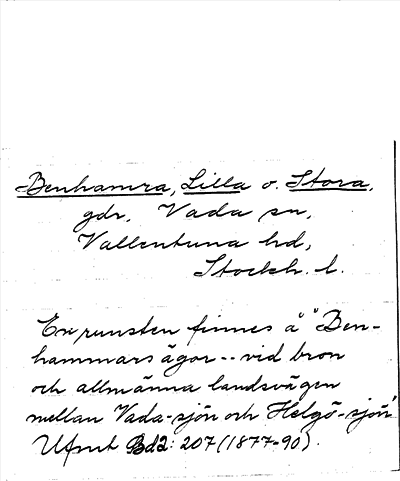 Benhamra, Lilla o. Stora,
gdr, Vada sn,
Vallentuna hd,
Stockh. l.
En runsten finnes å "Ben-
hammars ägor -- vid bron
och allmänna landsvägen
mellan Vada-sjön och Helgö-sjön"
Ufmt Bd2: 207 (1877-90).